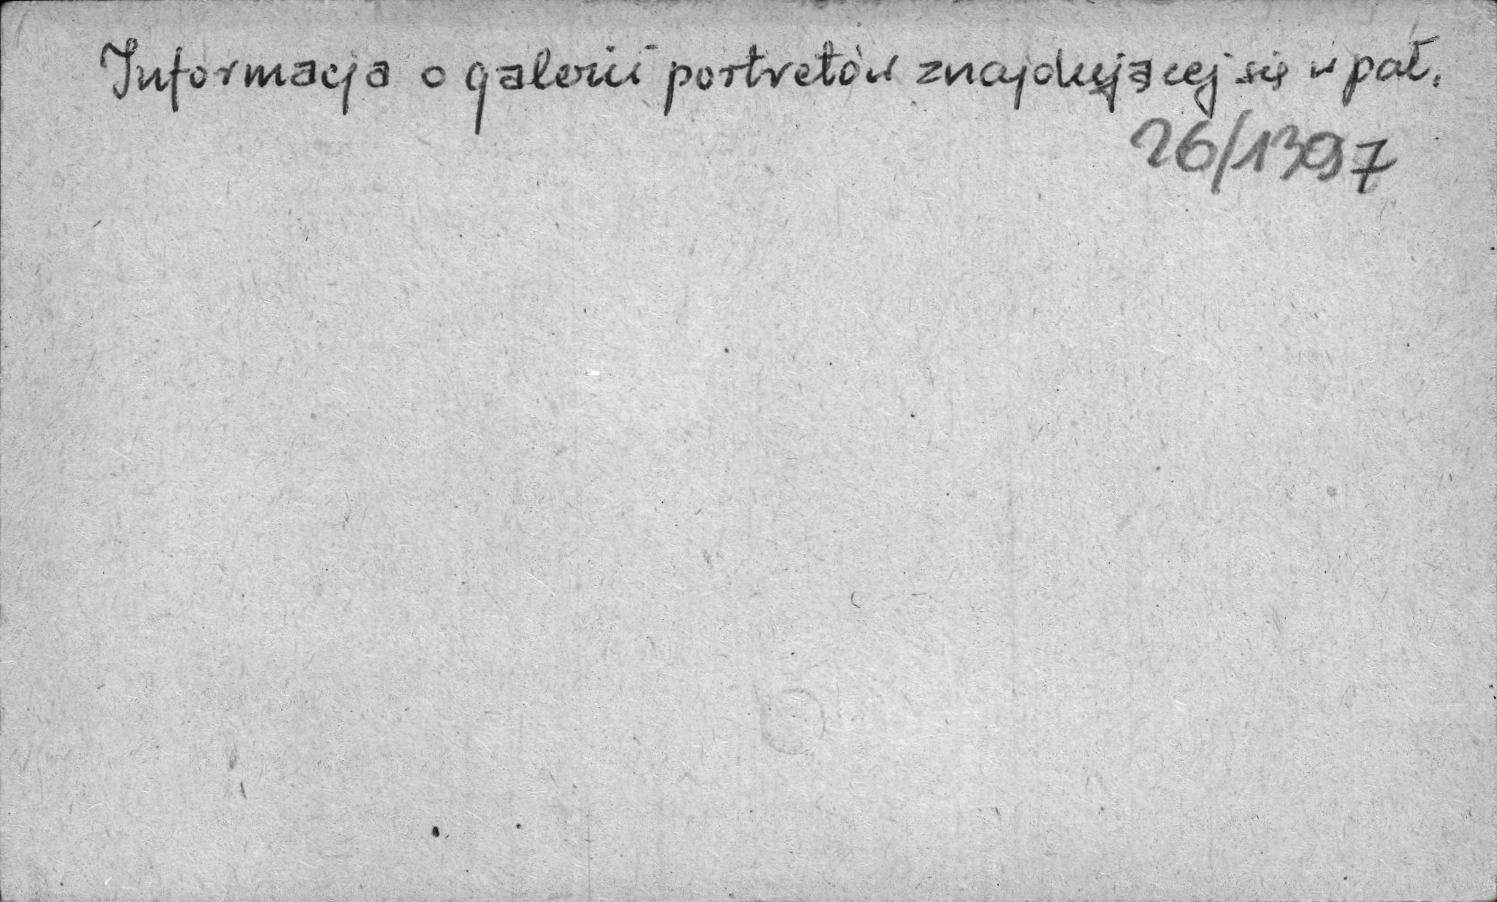 Informacja o galerii portretów znajdującej się w pał.
26/1397